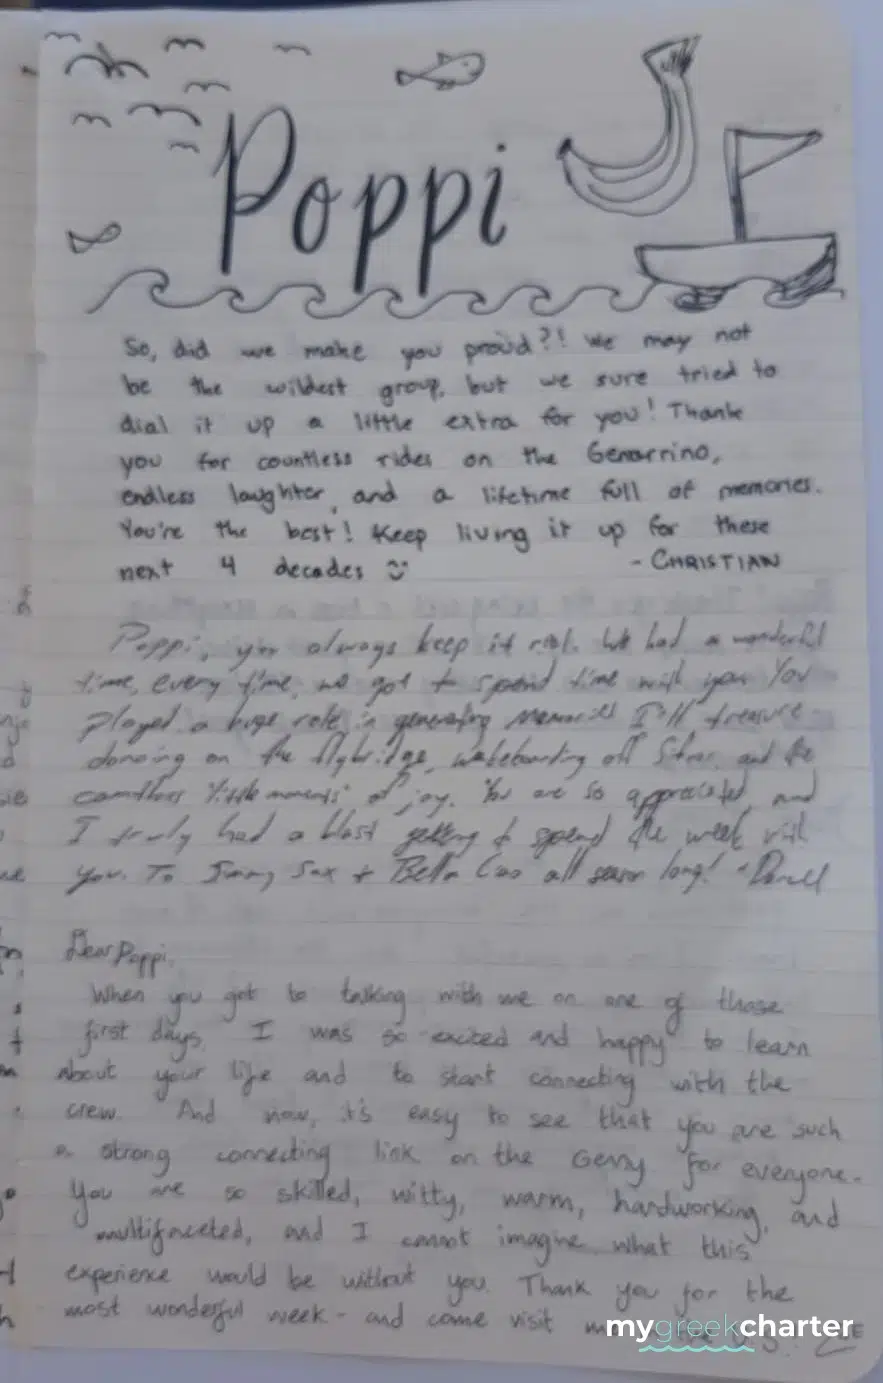 Poppi
So, did we make you proud?! We may not
be the wildest group, but we sure tried to
dial it up a little extra for you! Thank
you for countless rides on the Genarrino,
endless laughter, and a lifetime full of memories.
You're the best! Keep living it up for these
next 4 decades
- CHRISTIAN
Poppi, you always keep it real. We had a wonderful
time, every time, we got to spend time with you. You
played a huge role in generating memories I'll treasure
dancing on the flybridge, wakeboarding off and the
countless "little moments" of joy. You are so appreciated, and
I truly had a blast getting to spend the week with
you. To Jimmy Sax + Bella Ciao all season long!
Dear Poppi,
When you got to talking with me on one of those
first days, I was so excited and happy to learn
about your life and to start connecting with the
crew. And now, it's easy to see that you are such
a strong connecting link on the Genny for everyone.
You are so skilled, witty, warm, hardworking, and
multifaceted, and I cannot imagine what this
experience would be without you. Thank you for the
most wonderful week - and come visit
mygreekcharter